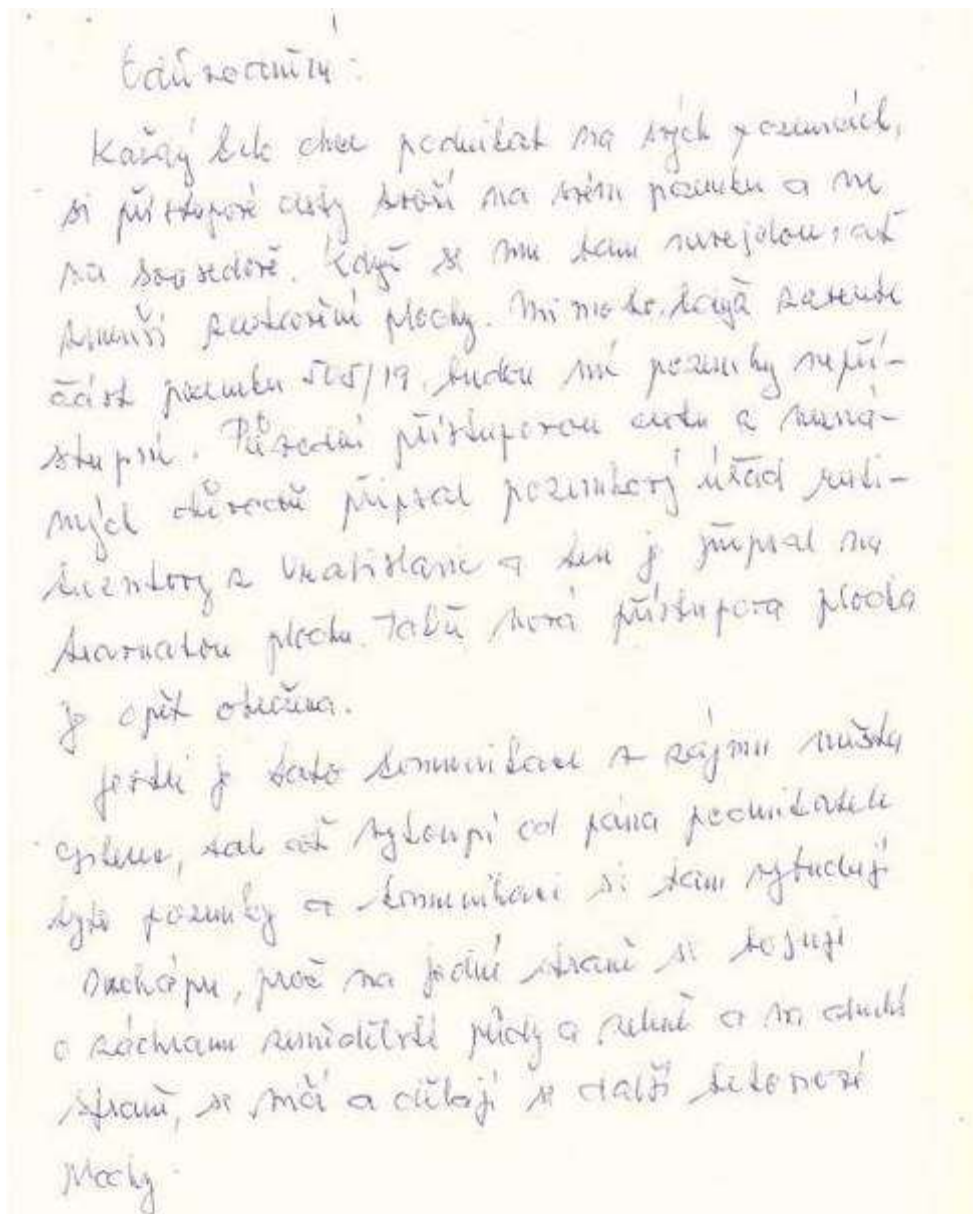 Odůvodnění:
Každý kdo chce podnikat na svých pozemcích,
si přístupové cesty tvoří na svém pozemku a ne
na sousedově. Když se mu tam nevejdou, ať
zmenší zastavění plochy. Mimo to, když zaberete
část pozemku 515/19, budou mé pozemky nepří-
stupné. Původní přístupovou cestu a
mých připsal pozemkový úřad
z Vratislavic a ten je připsal na
plochu. Takže nová přístupová plocha
je opět
Jestli je tato komunikace v zájmu města
, tak ať vykoupí od pána podnikatele
tyto pozemky a komunikaci si tam vybudují
Nechápu, proč na jedné straně se bojuje
o záchranu zemědělské půdy a zeleně a na druhé
straně, se ničí a dělají se další betonové
plochy.